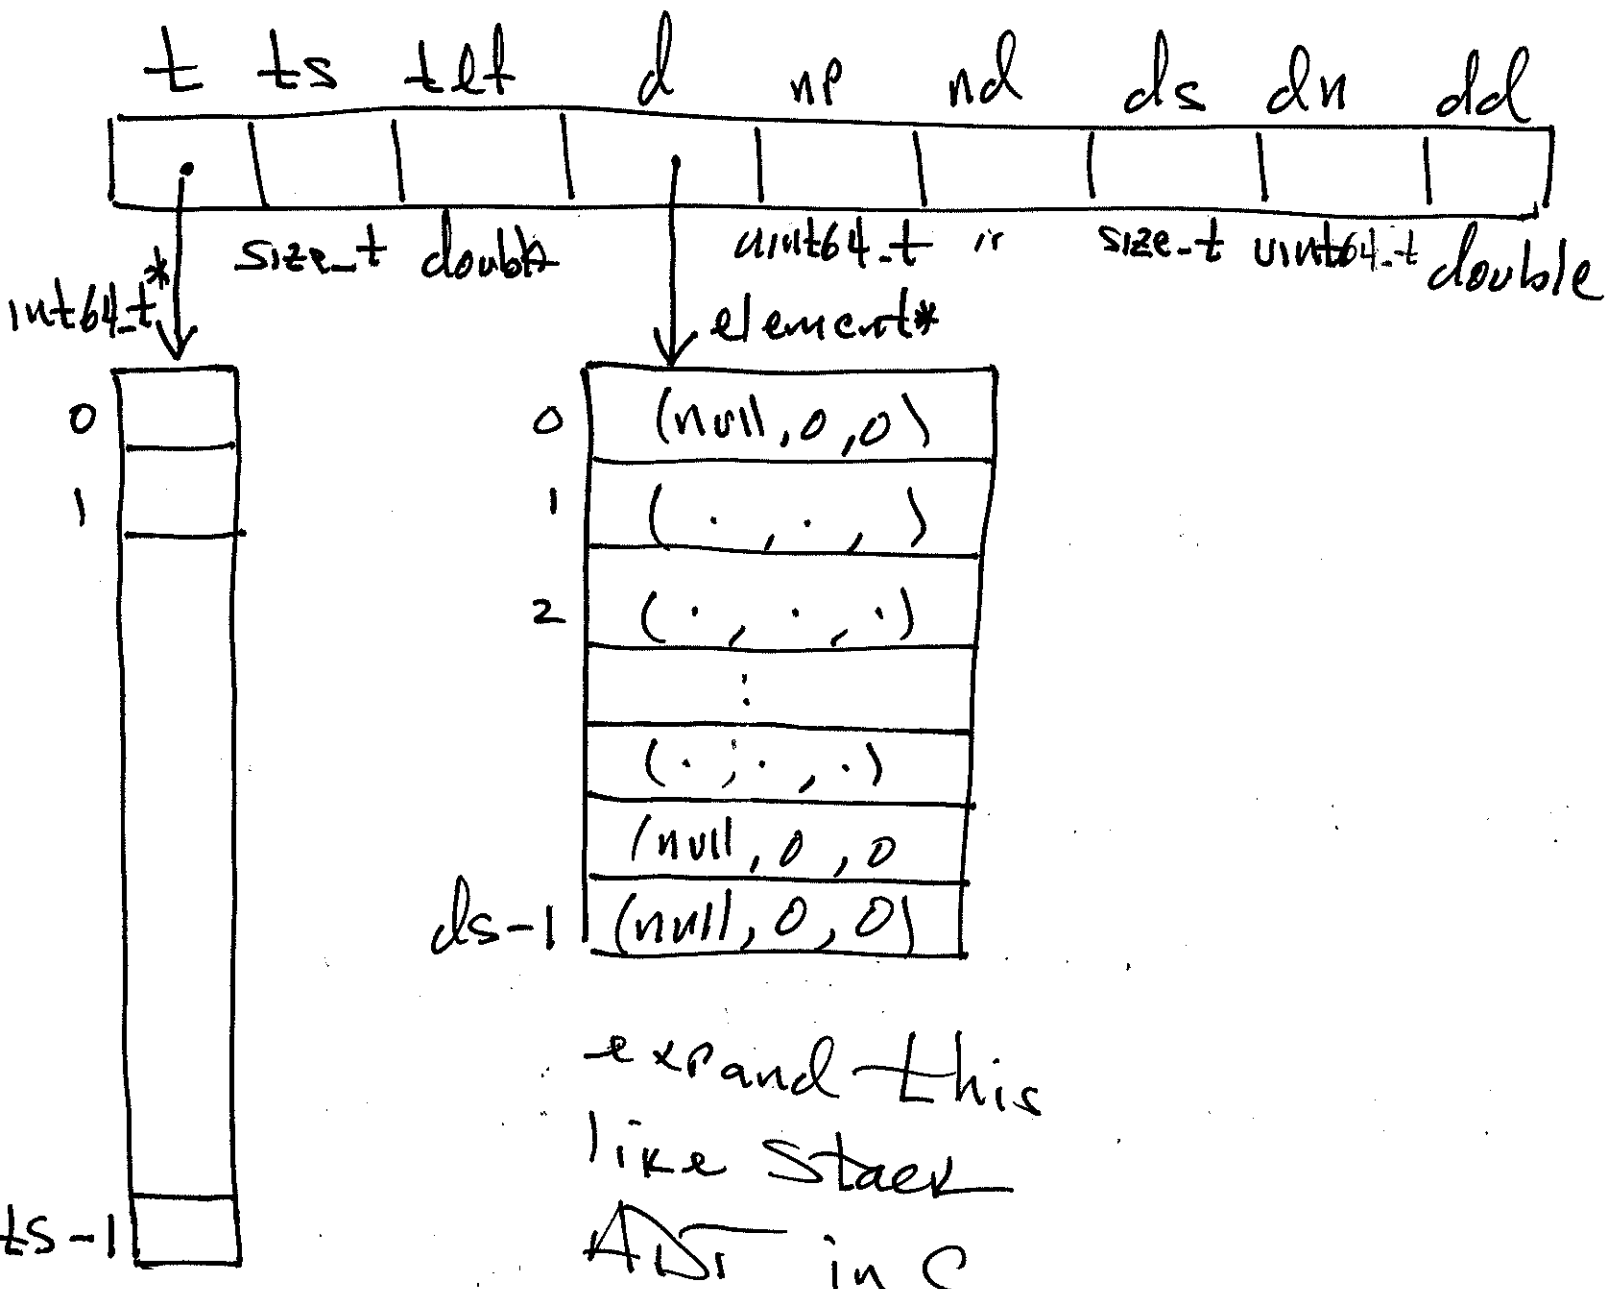 t ts tlf d np nd ds dn dd
size_t double uint64_t size_t uint64_t double
int64_t* element*
0 0 (null, 0, 0)
1 1 ( . , . , )
2 ( . , . , . )
:
( . , . , . )
(null, 0, 0
ds-1 (null, 0, 0)
expand this
like Stack
ts-1 ADT in C